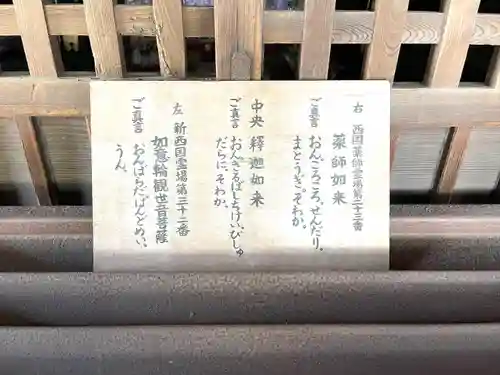 右 西国薬師霊場第二十三番
薬師如来
ご真言 おんころころ、せんだり、
まとうぎ。そわか。
中央 釋迦如来
ご真言 おんさるばしちけいびしゅ
だらに、そわか。
左 新西国霊場第三十二番
如意輪観世音菩薩
ご真言 おんばらだ、はんどめい、
うん。